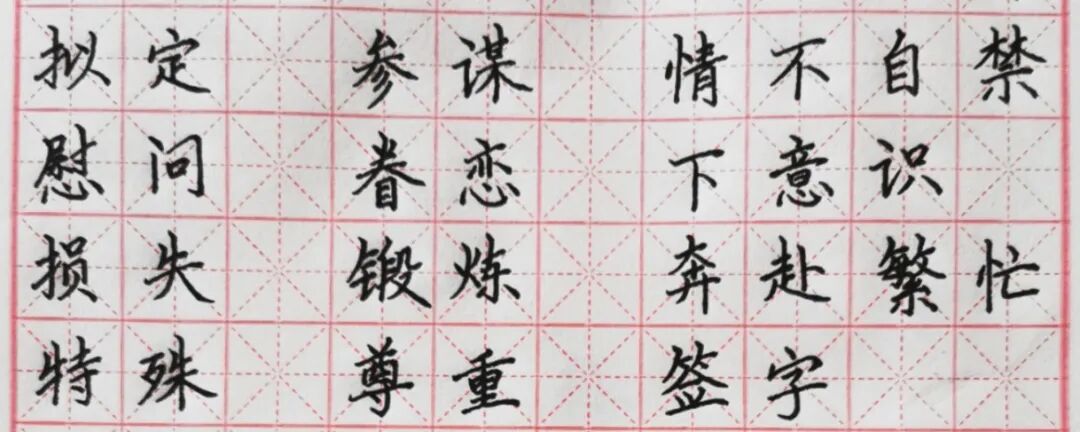 拟定 参谋 情不自禁
慰问 眷恋 下意识
损失 锻炼 奔赴繁忙
特殊 尊重 签字